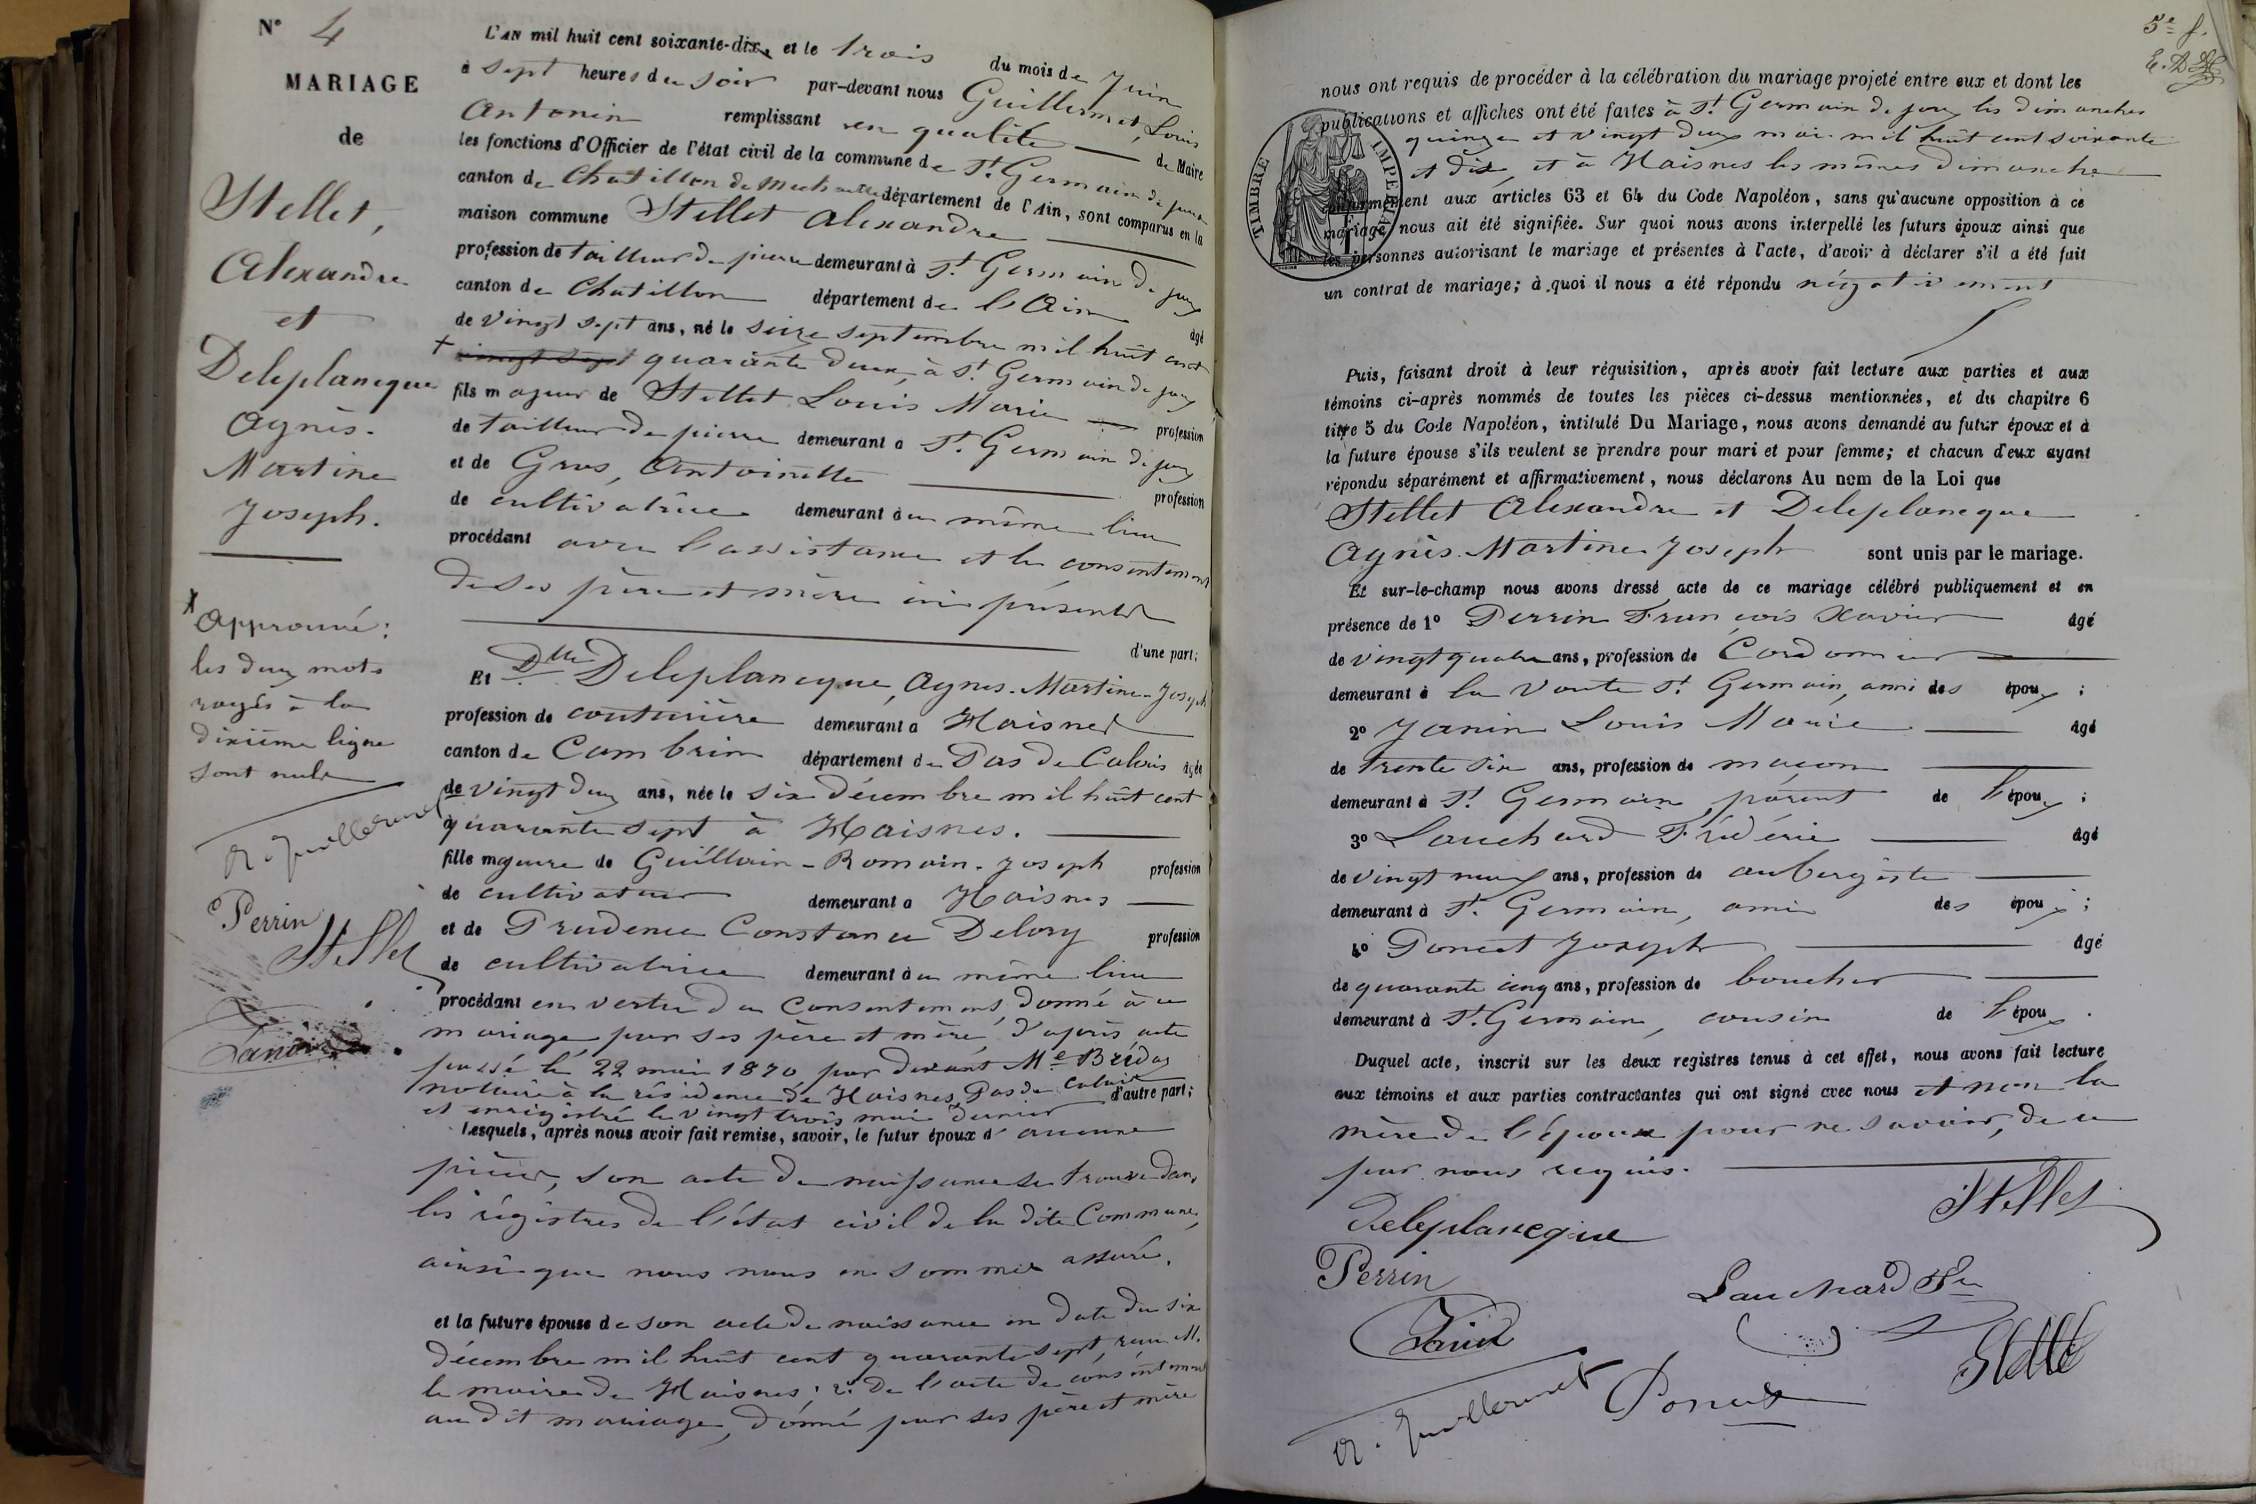 N° 4
MARIAGE
de
Stellet,
Alexandre
et
Deleplancque
Agnès.
Martine
Joseph.
X Approuvé:
les deux mots
rayés à la
dixième ligne
sont nuls
A. Guillermet
Perrin
Stellet
Janin
L'AN mil huit cent soixante-dix, et le trois du mois de Juin
à sept heures du soir par-devant nous Guillermet, Louis
Antonin remplissant en qualité de Maire
les fonctions d'Officier de l'état civil de la commune de St. Germain de joux
canton de Chatillon de Michaille département de l'Ain, sont comparus en la
maison commune Stellet Alexandre
profession de tailleur de pierre demeurant à St. Germain de joux
canton de Chatillon département de l'Ain âgé
de vingt sept ans, né le seize septembre mil huit cent
+ vingt sept quarante deux, à St. Germain de joux
fils majeur de Stellet Louis Marie profession
de tailleur de pierre demeurant a St. Germain de joux
et de Gros, Antoinette profession
de cultivatrice demeurant au même lieu
procédant avec l'assistance et le consentement
de ses père et mère ici présents
d'une part;
Et Dlle Deleplancque, Agnès-Martine-Joseph
profession de couturière demeurant a Haisnes
canton de Cambrin département du Pas de Calais âgée
de vingt deux ans, née le six décembre mil huit cent
quarante sept à Haisnes.
fille majeure de Guillain-Romain-Joseph profession
de cultivateur demeurant a Haisnes
et de Prudence Constance Delory profession
de cultivatrice demeurant au même lieu
procédant en vertu du consentement donné à ce
mariage par ses père et mère, d'après acte
passé le 22 mai 1870 par devant Me Brédas
notaire à la résidence de Haisnes, Pas de Calais d'autre part;
et enregistré le vingt trois mai dernier
Lesquels, après nous avoir fait remise, savoir, le futur époux d'aucune
pièces, son acte de naissance se trouve dans
les régistres de l'état civil de la dite Commune,
ainsi que nous nous en sommes assuré.
et la future épouse de son acte de naissance en date du six
décembre mil huit cent quarante sept,
le maire de Haisnes; 2° De l'acte de consentement
au dit mariage, donné par ses père et mère
5e f.
TIMBRE IMPERIAL
nous ont requis de procéder à la célébration du mariage projeté entre eux et dont les
publications et affiches ont été faites à St. Germain de joux les dimanches
quinze et vingt deux mai mil huit cent soixante
et dix, et à Haisnes les mêmes dimanches
conformément aux articles 63 et 64 du Code Napoléon, sans qu'aucune opposition à ce
mariage nous ait été signifiée. Sur quoi nous avons interpellé les futurs époux ainsi que
les personnes autorisant le mariage et présentes à l'acte, d'avoir à déclarer s'il a été fait
un contrat de mariage; à quoi il nous a été répondu négativement
Puis, faisant droit à leur réquisition, après avoir fait lecture aux parties et aux
témoins ci-après nommés de toutes les pièces ci-dessus mentionnées, et du chapitre 6
titre 5 du Code Napoléon, intitulé Du Mariage, nous avons demandé au futur époux et à
la future épouse s'ils veulent se prendre pour mari et pour femme; et chacun d'eux ayant
répondu séparément et affirmativement, nous déclarons Au nom de la Loi que
Stellet Alexandre et Deleplancque
Agnès-Martine Joseph sont unis par le mariage.
Et sur-le-champ nous avons dressé acte de ce mariage célébré publiquement et en
présence de 1° Perrin François Xavier âgé
de vingt quatre ans, profession de Cordonnier
demeurant à la Voute St. Germain, ami des époux;
2° Janin Louis Marie âgé
de trente six ans, profession de maçon
demeurant à St. Germain parent de l'époux;
3° Lauchard Frédéric âgé
de vingt neuf ans, profession de aubergiste
demeurant à St. Germain, ami des époux;
4° Poncet Joseph âgé
de quarante cinq ans, profession de boucher
demeurant à St. Germain, cousin de l'époux.
Duquel acte, inscrit sur les deux registres tenus à cet effet, nous avons fait lecture
aux témoins et aux parties contractantes qui ont signé avec nous et non la
mère de l'époux pour ne savoir, de ce
par nous requis.
Deleplancque
Stellet
Perrin
Lauchard
Janin
Stellet
A. Guillermet
Poncet